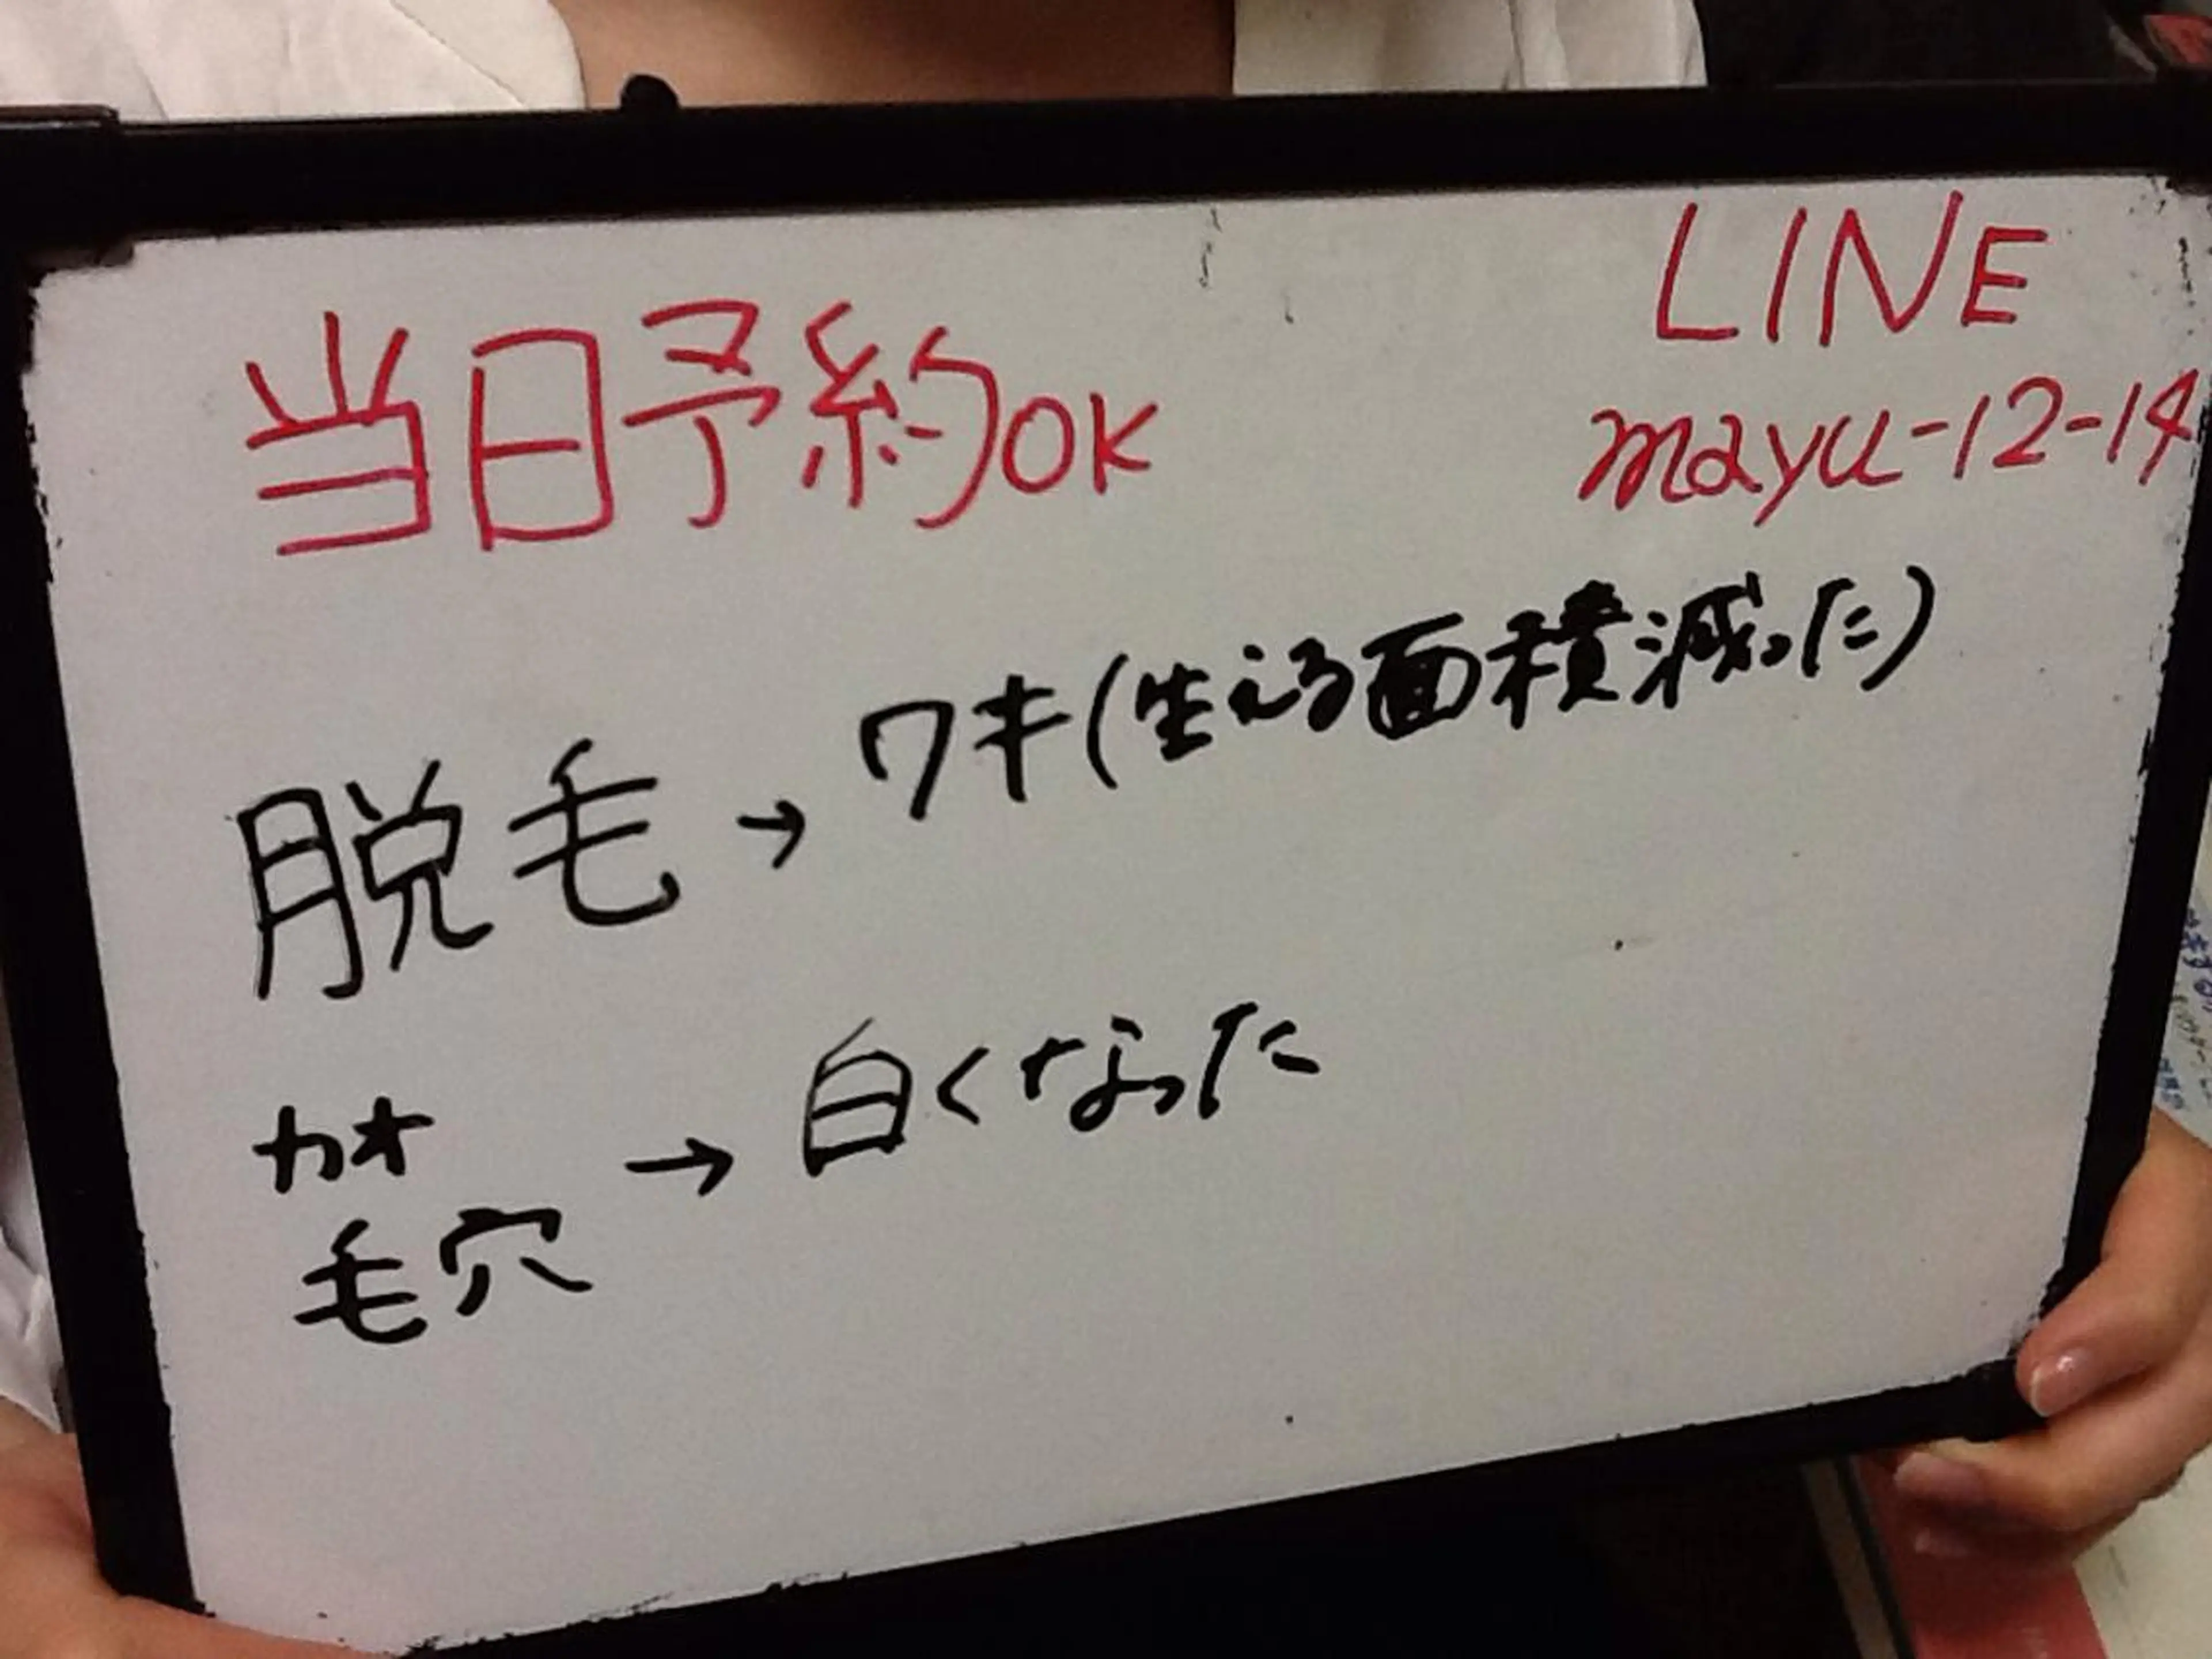 当日予約OK
LINE
mayu-12-14
脱毛→ワキ(生える面積減った)
カオ
毛穴
→白くなった